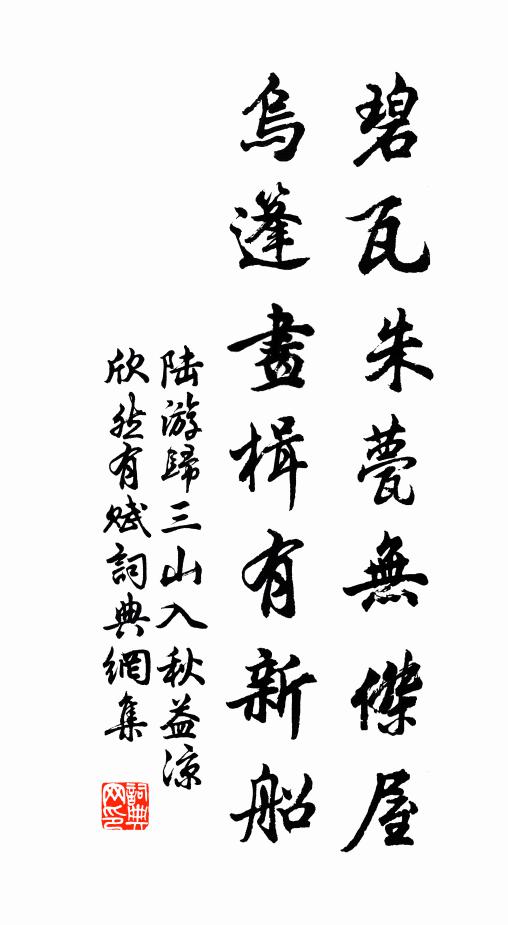 碧瓦朱甍無傑屋
烏篷畫楫有新船
陸游歸三山入秋益涼
欣然有赋詞典網集
詞典网印